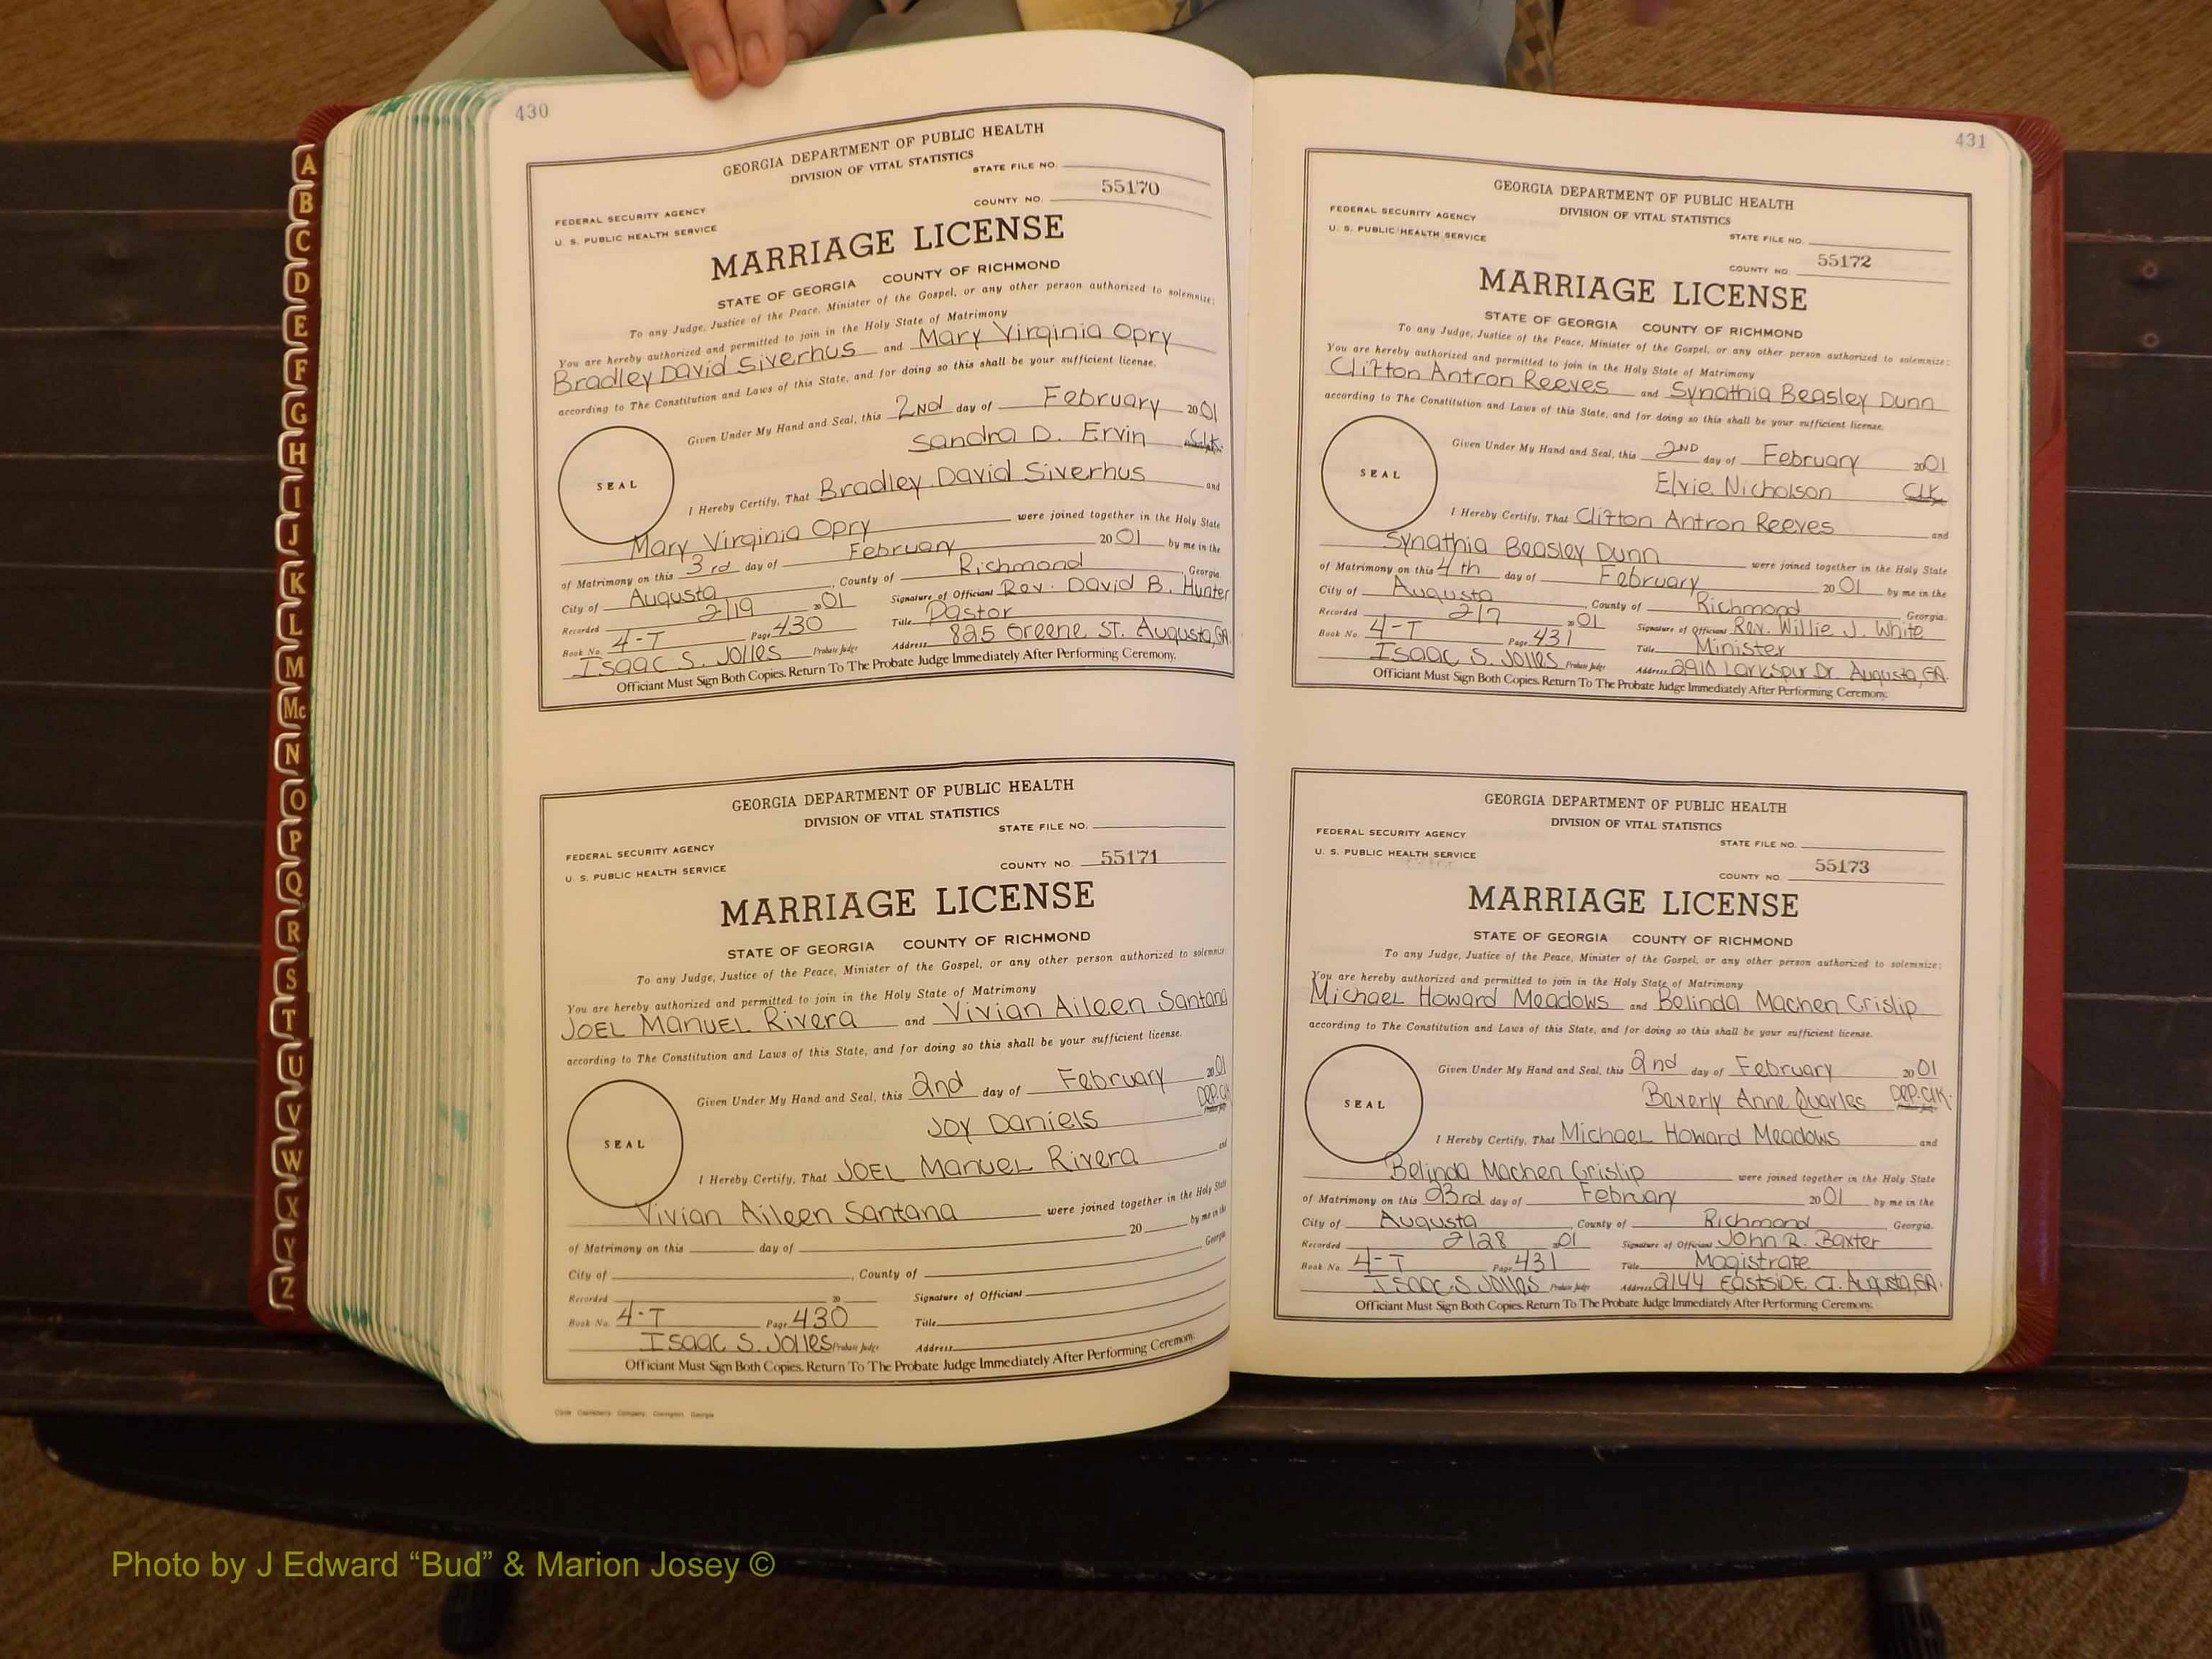 A
B
C
D
E
F
G
H
I
J
K
L
M
Mc
N
O
P
Q
R
S
T
U
V
W
X
Y
Z
430
GEORGIA DEPARTMENT OF PUBLIC HEALTH
DIVISION OF VITAL STATISTICS
STATE FILE NO.
FEDERAL SECURITY AGENCY
U. S. PUBLIC HEALTH SERVICE
COUNTY NO. 55170
MARRIAGE LICENSE
STATE OF GEORGIA COUNTY OF RICHMOND
To any Judge, Justice of the Peace, Minister of the Gospel, or any other person authorized to solemnize:
You are hereby authorized and permitted to join in the Holy State of Matrimony
Bradley David Siverhus and Mary Virginia Opry
according to The Constitution and Laws of this State, and for doing so this shall be your sufficient license.
Given Under My Hand and Seal, this 2nd day of February 2001
Sandra D. Ervin Clk.
SEAL
I Hereby Certify, That Bradley David Siverhus and
Mary Virginia Opry were joined together in the Holy State
of Matrimony on this 3rd day of February 2001 by me in the
City of Augusta, County of Richmond, Georgia.
Recorded 2/19 2001 Signature of Officiant Rev. David B. Hunter
Book No. 4-T Page 430 Title Pastor
Isaac S. Jolles Probate Judge Address 825 Greene St. Augusta, GA
Officiant Must Sign Both Copies. Return To The Probate Judge Immediately After Performing Ceremony.
GEORGIA DEPARTMENT OF PUBLIC HEALTH
DIVISION OF VITAL STATISTICS
STATE FILE NO.
FEDERAL SECURITY AGENCY
U. S. PUBLIC HEALTH SERVICE
COUNTY NO. 55171
MARRIAGE LICENSE
STATE OF GEORGIA COUNTY OF RICHMOND
To any Judge, Justice of the Peace, Minister of the Gospel, or any other person authorized to solemnize:
You are hereby authorized and permitted to join in the Holy State of Matrimony
Joel Manuel Rivera and Vivian Aileen Santana
according to The Constitution and Laws of this State, and for doing so this shall be your sufficient license.
Given Under My Hand and Seal, this 2nd day of February 2001
Joy Daniels Dep. Clk
SEAL
I Hereby Certify, That Joel Manuel Rivera and
Vivian Aileen Santana were joined together in the Holy State
of Matrimony on this day of 20 by me in the
City of , County of Georgia
Recorded 20 Signature of Officiant
Book No. 4-T Page 430 Title
Isaac S. Jolles Probate Judge Address
Officiant Must Sign Both Copies. Return To The Probate Judge Immediately After Performing Ceremony.
431
GEORGIA DEPARTMENT OF PUBLIC HEALTH
DIVISION OF VITAL STATISTICS
STATE FILE NO.
FEDERAL SECURITY AGENCY
U. S. PUBLIC HEALTH SERVICE
COUNTY NO. 55172
MARRIAGE LICENSE
STATE OF GEORGIA COUNTY OF RICHMOND
To any Judge, Justice of the Peace, Minister of the Gospel, or any other person authorized to solemnize:
You are hereby authorized and permitted to join in the Holy State of Matrimony
Clifton Antron Reeves and Synathia Beasley Dunn
according to The Constitution and Laws of this State, and for doing so this shall be your sufficient license.
Given Under My Hand and Seal, this 2nd day of February 2001
Elvie Nicholson Clk
SEAL
I Hereby Certify, That Clifton Antron Reeves and
Synathia Beasley Dunn were joined together in the Holy State
of Matrimony on this 4th day of February 2001 by me in the
City of Augusta, County of Richmond, Georgia.
Recorded 2/7 2001 Signature of Officiant Rev. Willie J. White
Book No. 4-T Page 431 Title Minister
Isaac S. Jolles Probate Judge Address 2910 Larkspur Dr. Augusta, GA.
Officiant Must Sign Both Copies. Return To The Probate Judge Immediately After Performing Ceremony.
GEORGIA DEPARTMENT OF PUBLIC HEALTH
DIVISION OF VITAL STATISTICS
STATE FILE NO.
FEDERAL SECURITY AGENCY
U. S. PUBLIC HEALTH SERVICE
COUNTY NO. 55173
MARRIAGE LICENSE
STATE OF GEORGIA COUNTY OF RICHMOND
To any Judge, Justice of the Peace, Minister of the Gospel, or any other person authorized to solemnize:
You are hereby authorized and permitted to join in the Holy State of Matrimony
Michael Howard Meadows and Belinda Machen Crislip
according to The Constitution and Laws of this State, and for doing so this shall be your sufficient license.
Given Under My Hand and Seal, this 2nd day of February 2001
Beverly Anne Quarles Dep. Clk.
SEAL
I Hereby Certify, That Michael Howard Meadows and
Belinda Machen Crislip were joined together in the Holy State
of Matrimony on this 23rd day of February 2001 by me in the
City of Augusta, County of Richmond, Georgia.
Recorded 2/28 2001 Signature of Officiant John R. Baxter
Book No. 4-T Page 431 Title Magistrate
Isaac S. Jolles Probate Judge Address 2144 Eastside Ct. Augusta, GA.
Officiant Must Sign Both Copies. Return To The Probate Judge Immediately After Performing Ceremony.
Photo by J Edward “Bud” & Marion Josey ©